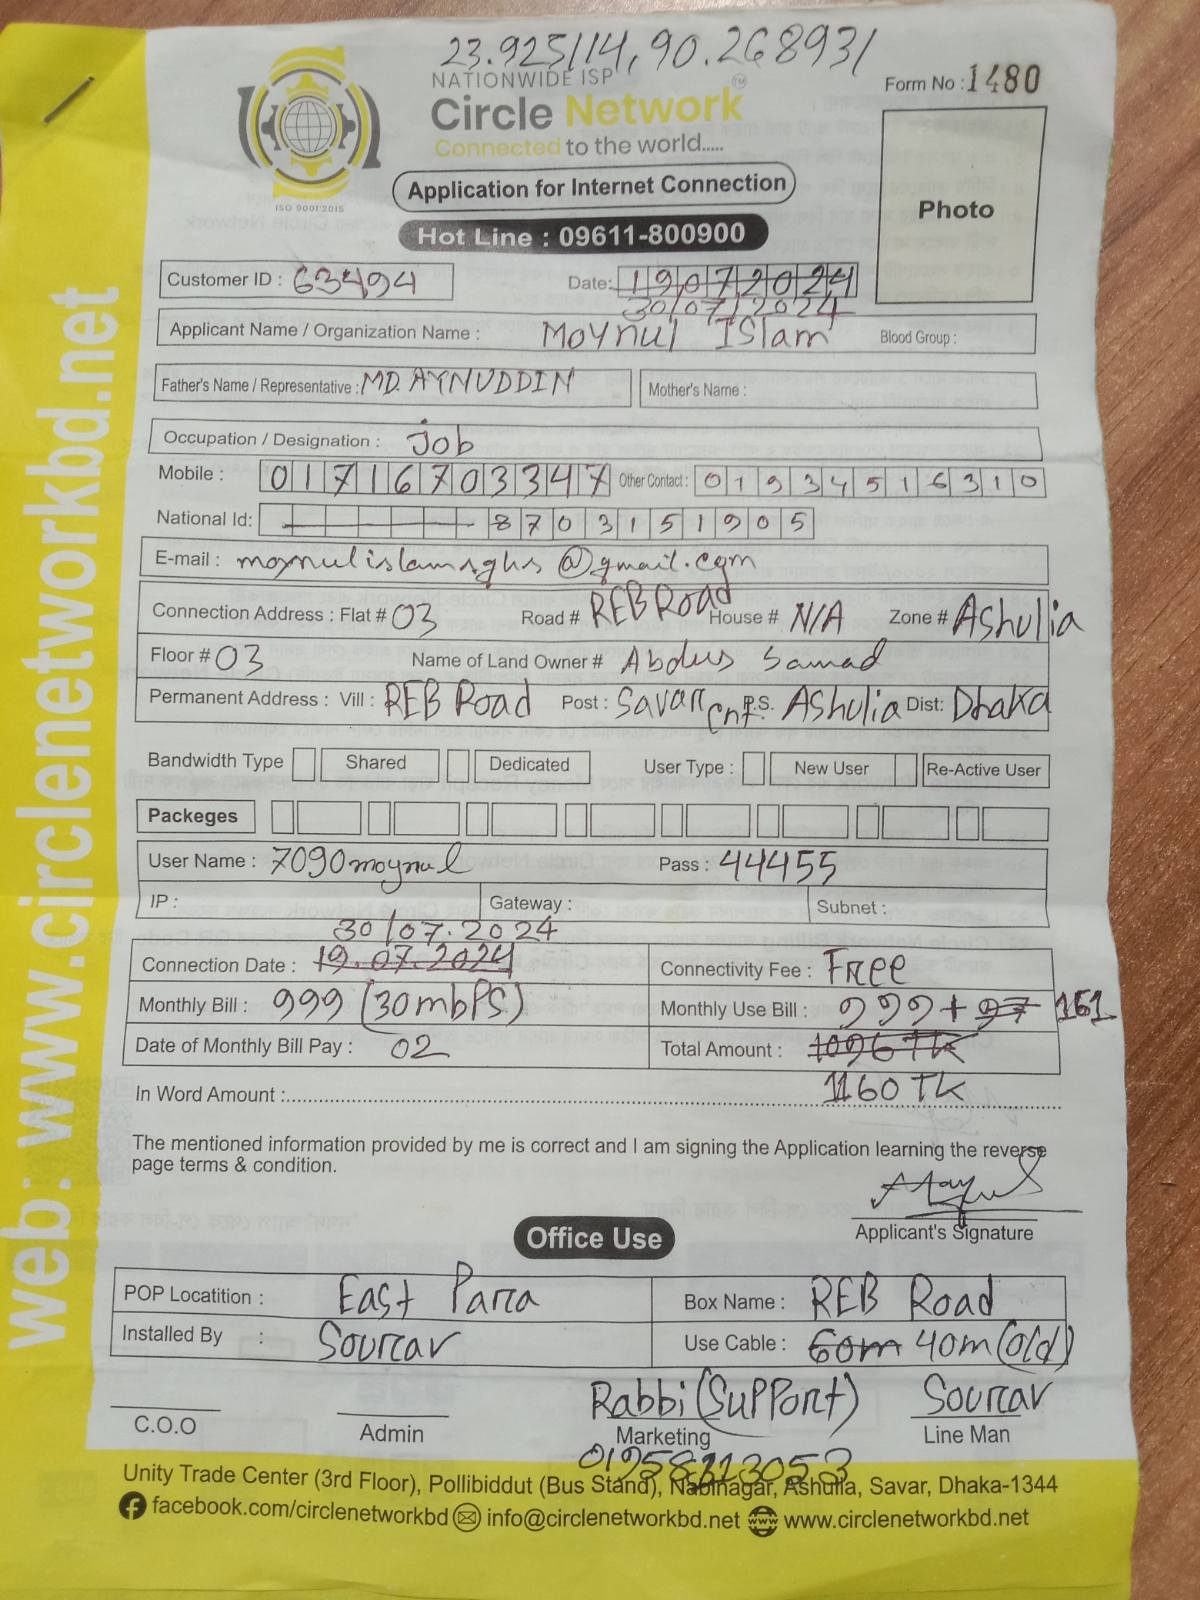 23.925114, 90.268931
NATIONWIDE ISP
Circle Network™
Connected to the world.....
Form No : 1480
ISO 9001:2015
Application for Internet Connection
Photo
Hot Line : 09611-800900
Customer ID : 63494
Date: 19072024
30/07/2024
Applicant Name / Organization Name : Moynul Islam Blood Group :
Father's Name / Representative : MD. AYNUDDIN Mother's Name :
Occupation / Designation : Job
Mobile : 01716703347 Other Contact : 01934516310
National Id: 8703151905
E-mail : @gmail.com
Connection Address : Flat # 03 Road # REB Road House # N/A Zone # Ashulia
Floor # 03 Name of Land Owner # Abdus Samad
Permanent Address : Vill : REB Road Post : Savar Cnt. P.S. Ashulia Dist: Dhaka
Bandwidth Type Shared Dedicated User Type : New User Re-Active User
Packeges
User Name : 7090moynul Pass : 44455
IP : Gateway : Subnet :
30/07.2024
Connection Date : 19.07.2024 Connectivity Fee : Free
Monthly Bill : 999 (30mbps) Monthly Use Bill : 999 + 97 161
Date of Monthly Bill Pay : 02 Total Amount : 1096 TK
1160 TK
In Word Amount :
The mentioned information provided by me is correct and I am signing the Application learning the reverse
page terms & condition.
Applicant's Signature
Office Use
POP Locatition : East Para Box Name : REB Road
Installed By : Sourav Use Cable : 60m 40m (old)
Rabbi (Support) Sourav
C.O.O Admin Marketing Line Man
Unity Trade Center (3rd Floor), Pollibiddut (Bus Stand), Nabinagar, Ashulia, Savar, Dhaka-1344
facebook.com/circlenetworkbd info@circlenetworkbd.net www.circlenetworkbd.net
web: www.circlenetworkbd.net